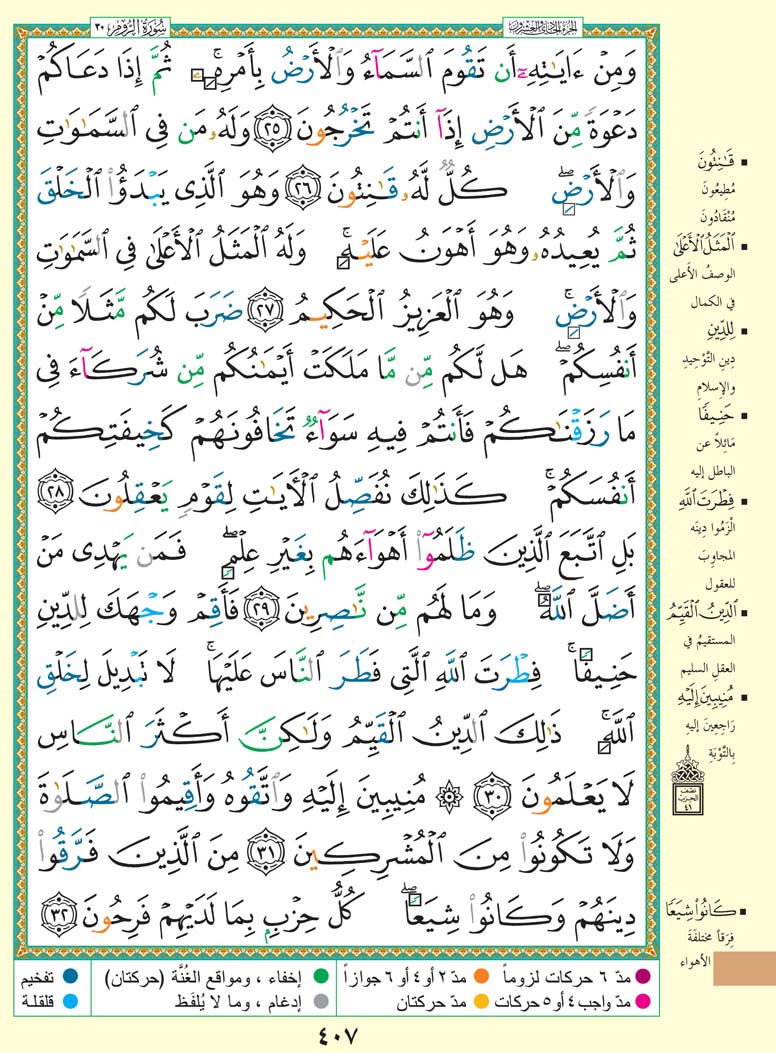 سُورَةُ الرُّومِ ٣٠
الجُزءُ الحَادِي وَالعِشرُونَ
وَمِنْ ءَايَٰتِهِۦٓ أَن تَقُومَ ٱلسَّمَآءُ وَٱلْأَرْضُ بِأَمْرِهِۦۚ ثُمَّ إِذَا دَعَاكُمْ
دَعْوَةً مِّنَ ٱلْأَرْضِ إِذَآ أَنتُمْ تَخْرُجُونَ ٢٥ وَلَهُۥ مَن فِى ٱلسَّمَٰوَٰتِ
وَٱلْأَرْضِۖ كُلٌّ لَّهُۥ قَٰنِتُونَ ٢٦ وَهُوَ ٱلَّذِى يَبْدَؤُا۟ ٱلْخَلْقَ
ثُمَّ يُعِيدُهُۥ وَهُوَ أَهْوَنُ عَلَيْهِۚ وَلَهُ ٱلْمَثَلُ ٱلْأَعْلَىٰ فِى ٱلسَّمَٰوَٰتِ
وَٱلْأَرْضِۚ وَهُوَ ٱلْعَزِيزُ ٱلْحَكِيمُ ٢٧ ضَرَبَ لَكُم مَّثَلًا مِّنْ
أَنفُسِكُمْۖ هَل لَّكُم مِّن مَّا مَلَكَتْ أَيْمَٰنُكُم مِّن شُرَكَآءَ فِى
مَا رَزَقْنَٰكُمْ فَأَنتُمْ فِيهِ سَوَآءٌ تَخَافُونَهُمْ كَخِيفَتِكُمْ
أَنفُسَكُمْۚ كَذَٰلِكَ نُفَصِّلُ ٱلْءَايَٰتِ لِقَوْمٍ يَعْقِلُونَ ٢٨
بَلِ ٱتَّبَعَ ٱلَّذِينَ ظَلَمُوٓا۟ أَهْوَآءَهُم بِغَيْرِ عِلْمٍۖ فَمَن يَهْدِى مَنْ
أَضَلَّ ٱللَّهُۖ وَمَا لَهُم مِّن نَّٰصِرِينَ ٢٩ فَأَقِمْ وَجْهَكَ لِلدِّينِ
حَنِيفًاۚ فِطْرَتَ ٱللَّهِ ٱلَّتِى فَطَرَ ٱلنَّاسَ عَلَيْهَاۚ لَا تَبْدِيلَ لِخَلْقِ
ٱللَّهِۚ ذَٰلِكَ ٱلدِّينُ ٱلْقَيِّمُ وَلَٰكِنَّ أَكْثَرَ ٱلنَّاسِ
لَا يَعْلَمُونَ ٣٠ ۞ مُنِيبِينَ إِلَيْهِ وَٱتَّقُوهُ وَأَقِيمُوا۟ ٱلصَّلَوٰةَ
وَلَا تَكُونُوا۟ مِنَ ٱلْمُشْرِكِينَ ٣١ مِنَ ٱلَّذِينَ فَرَّقُوا۟
دِينَهُمْ وَكَانُوا۟ شِيَعًاۖ كُلُّ حِزْبٍۭ بِمَا لَدَيْهِمْ فَرِحُونَ ٣٢
▪ قَٰنِتُونَ
مُطِيعُونَ
مُنْقَادُونَ
▪ ٱلْمَثَلُ ٱلْأَعْلَىٰ
الوصفُ الأعلى
في الكمال
▪ لِلدِّينِ
دِينِ التَّوْحِيدِ
والإسلامِ
▪ حَنِيفًا
مَائِلاً عن
الباطل إليه
▪ فِطْرَتَ ٱللَّهِ
الْزَمُوا دِينَه
المجاوِبَ
للعقول
▪ ٱلدِّينُ ٱلْقَيِّمُ
المستقيمُ في
العقلِ السليم
▪ مُنِيبِينَ إِلَيْهِ
رَاجِعِينَ إليهِ
بِالتَّوْبَةِ
نصف
الحزب
٤١
▪ كَانُوا۟ شِيَعًا
فِرَقاً مختلفَةَ
الأهواء
مدّ ٦ حركات لزوماً
مدّ ٢ أو ٤ أو ٦ جوازاً
إخفاء ، ومواقع الغُنَّة (حركتان)
تفخيم
مدّ واجب ٤ أو ٥ حركات
مدّ حركتان
إدغام ، وما لا يُلفَظ
قلقلة
٤٠٧